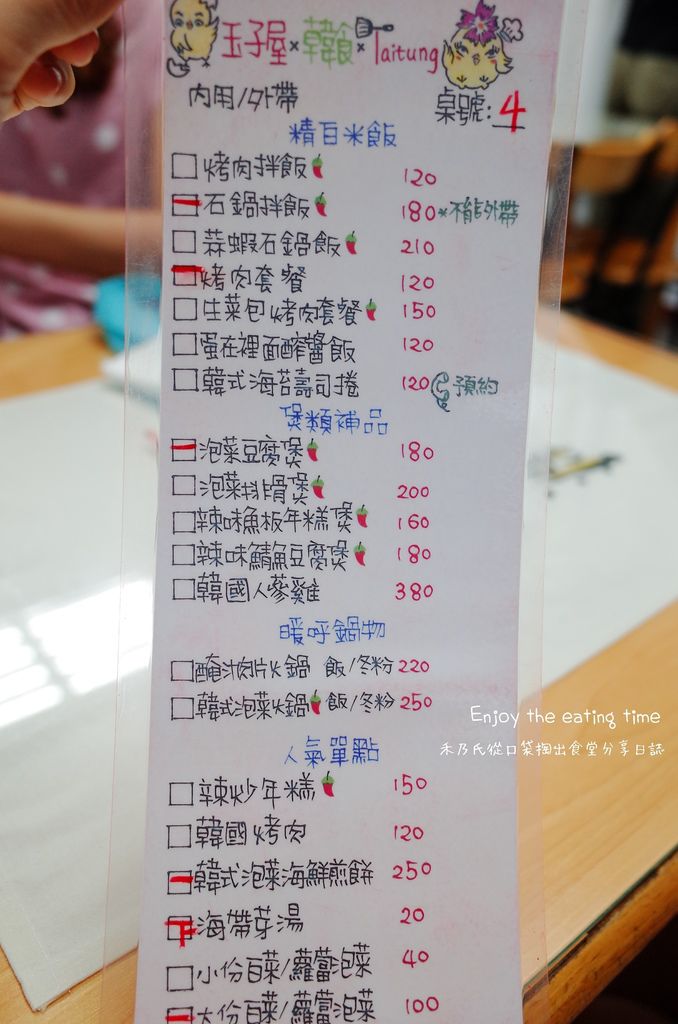 玉子屋×韓食×Taitung
內用/外帶 桌號:4
精百米飯
烤肉拌飯 120
石鍋拌飯 180 *不能外帶
蒜蝦石鍋飯 210
烤肉套餐 120
生菜包烤肉套餐 150
蛋在裡面醡醬飯 120
韓式海苔壽司捲 120 預約
煲類補品
泡菜豆腐煲 180
泡菜排骨煲 200
辣味魚板年糕煲 160
辣味鯖魚豆腐煲 180
韓國人蔘雞 380
暖呼鍋物
醃汁肉片火鍋 飯/冬粉 220
韓式泡菜火鍋 飯/冬粉 250
Enjoy the eating time
禾乃氏從口袋掏出食堂分享日誌
人氣單點
辣炒年糕 150
韓國烤肉 120
韓式泡菜海鮮煎餅 250
海帶芽湯 20
小份白菜/蘿蔔泡菜 40
大份白菜/蘿蔔泡菜 100